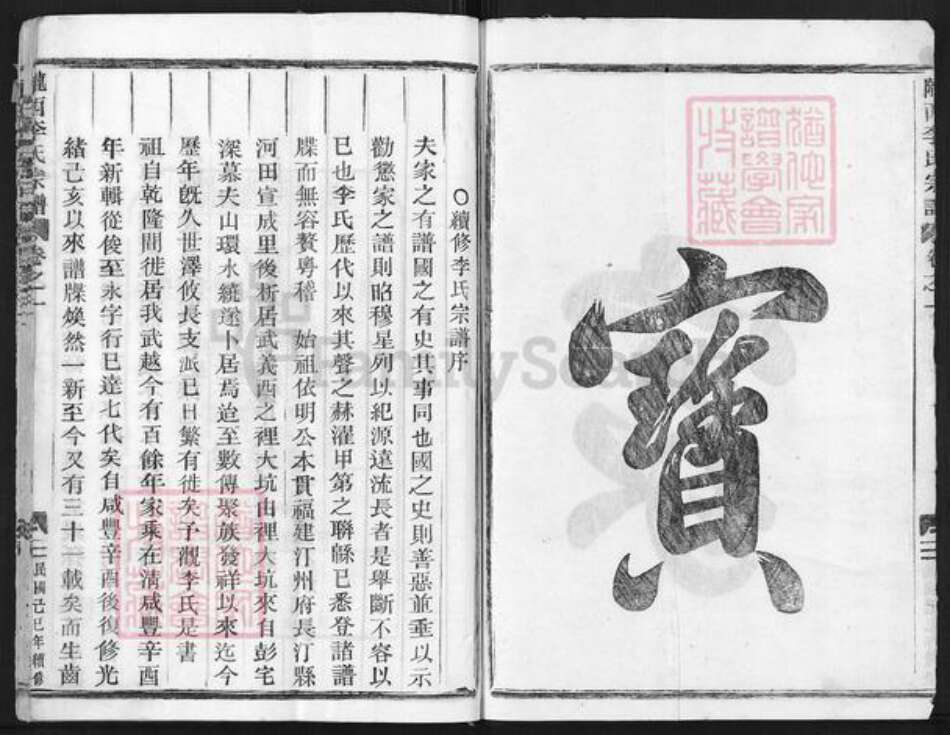 寶
猶他家譜學會收藏
FamilySearch
〇續修李氏宗譜序
夫家之有譜國之有史其事同也國之史則善惡並垂以示
勸懲家之譜則昭穆星列以紀源遠流長者是舉斷不容以
已也李氏歷代以來其聲之赫濯甲第之聯緜已悉登諸譜
牒而無容贅粤稽 始祖依明公本貫福建汀州府長汀縣
河田宣成里後析居武義西之裡大坑由裡大坑來自彭宅
深慕夫山環水繞遂卜居焉迨至數傳聚族發祥以來迄今
歷年旣久世澤攸長支派已日繁有徙矣予觀李氏是書
祖自乾隆間徙居我武越今有百餘年家乘在清咸豐辛酉
年新輯從俊至永字行已達七代矣自咸豐辛酉後復修光
緒己亥以來譜牒煥然一新至今又有三十一載矣而生齒
隴西李氏宗譜 卷之一
民國己巳年續修